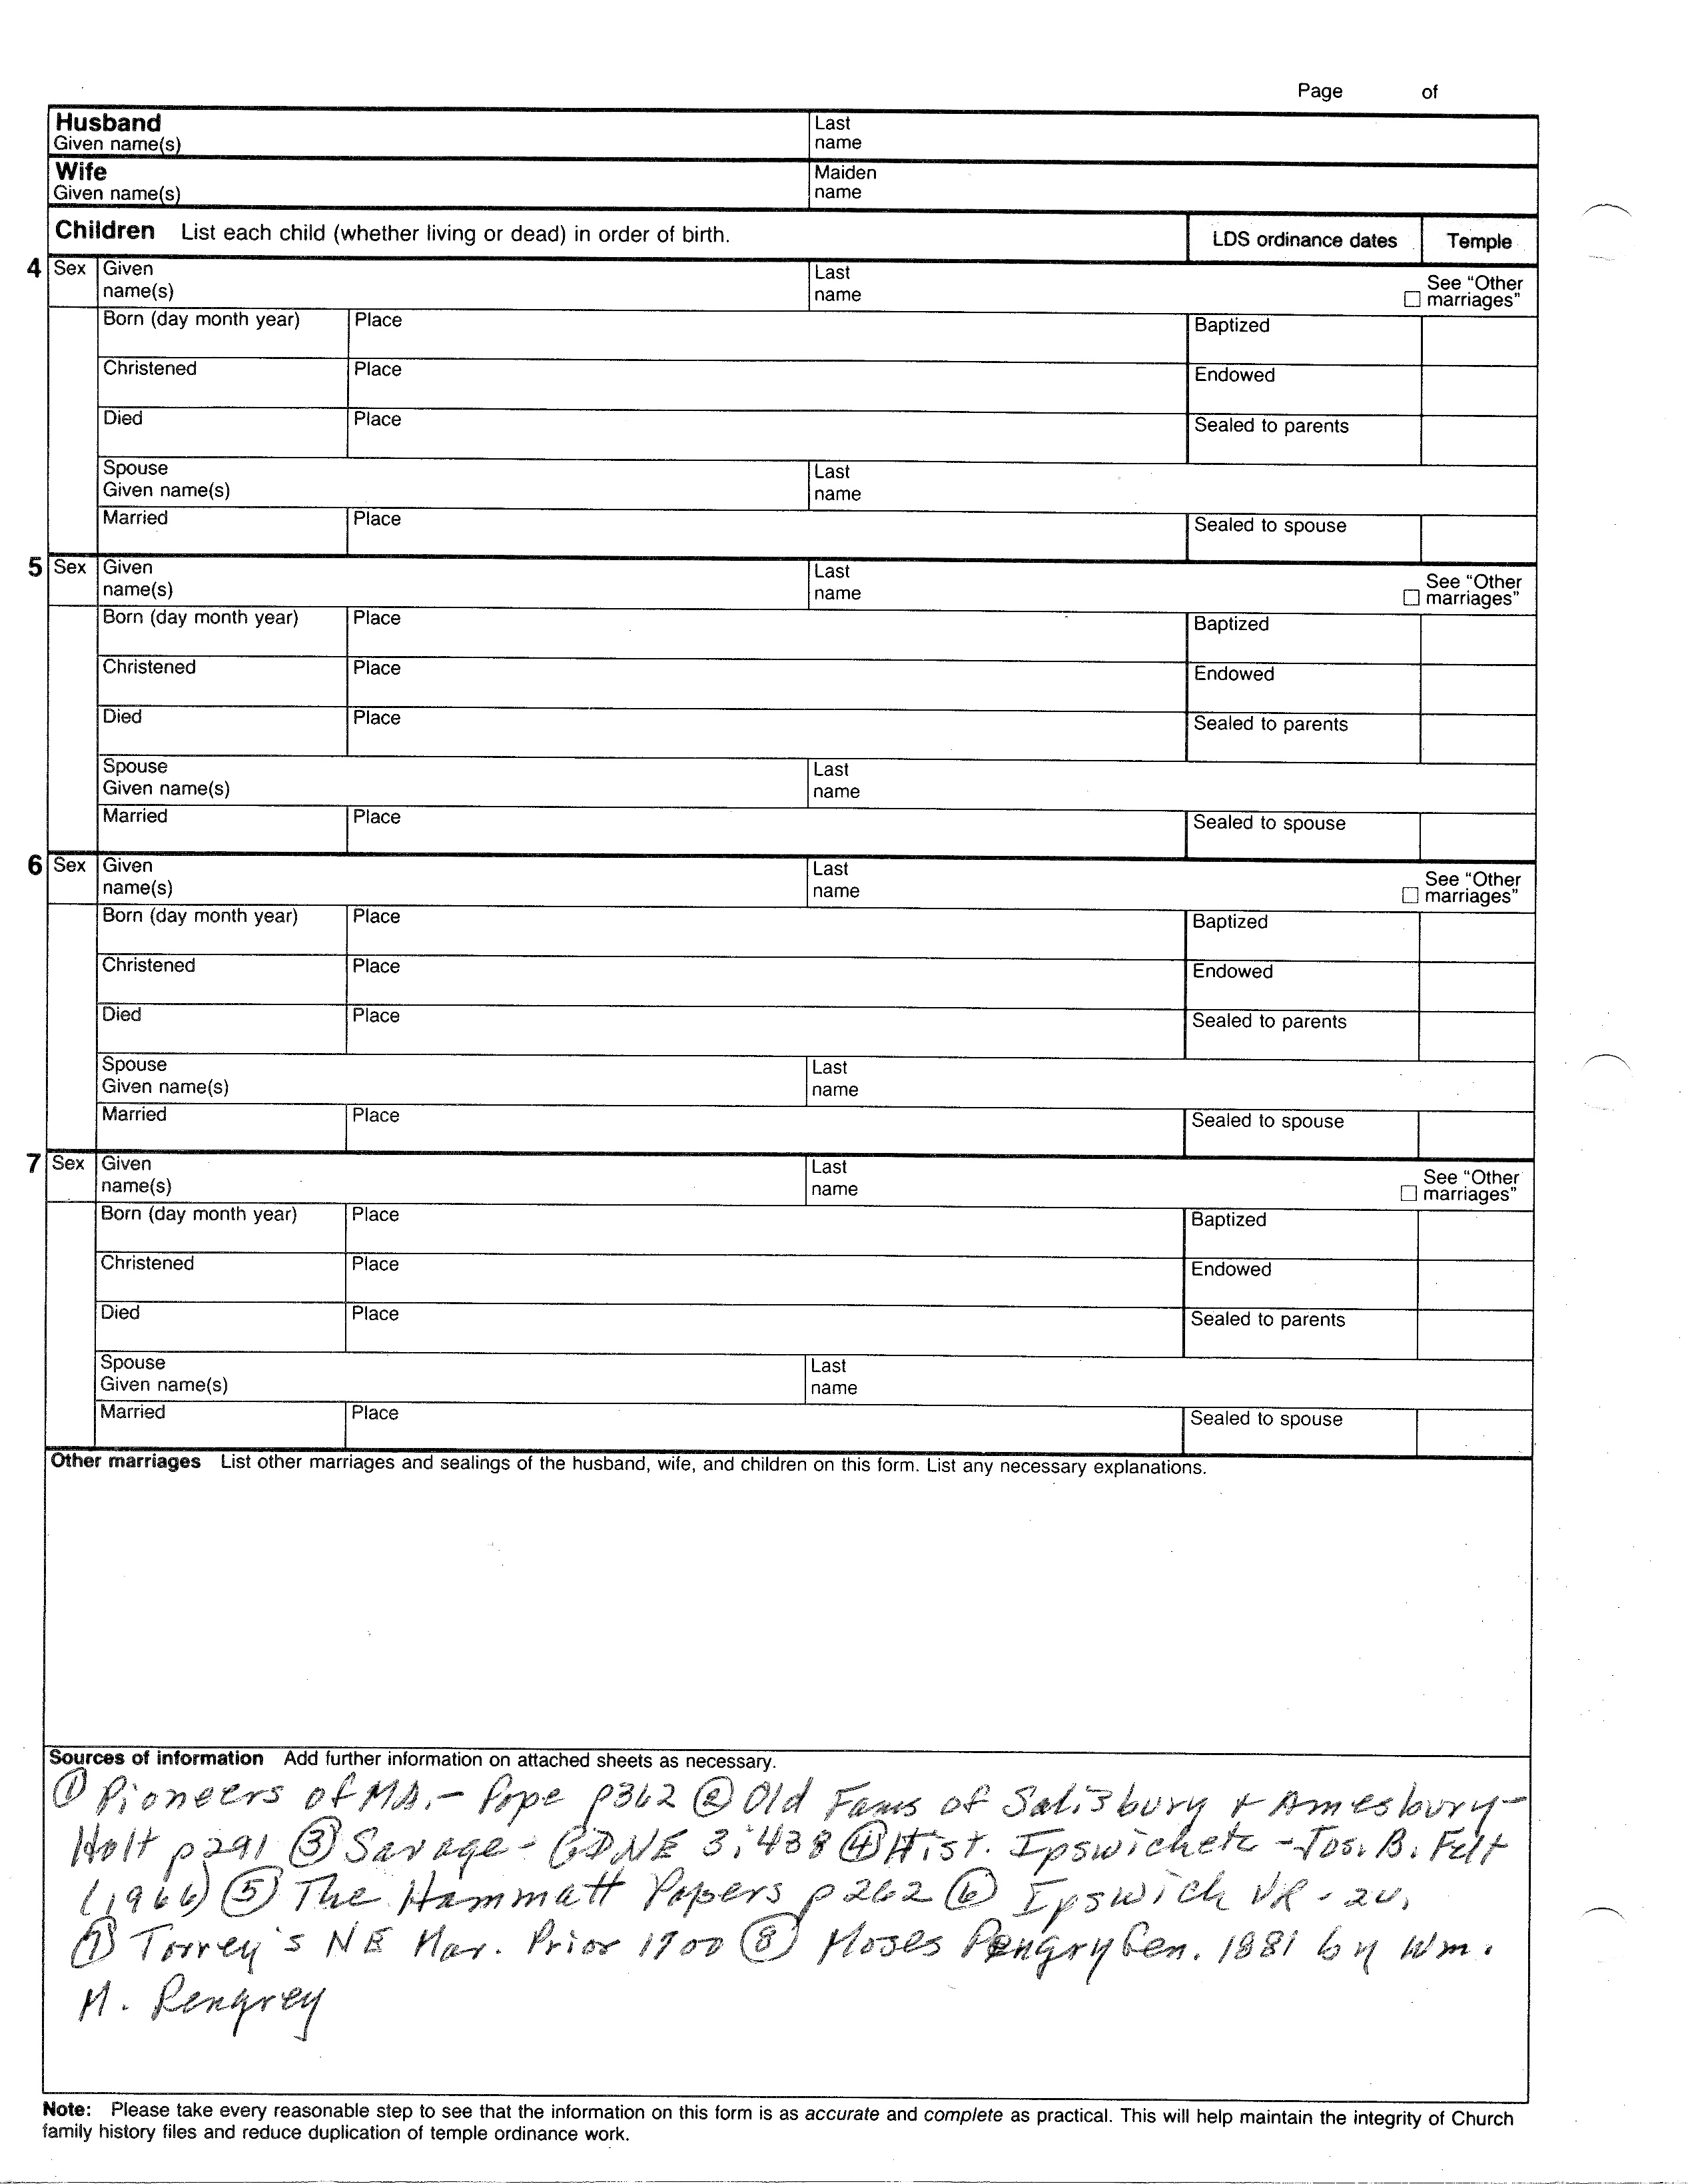 Page of
Husband
Given name(s)
Last
name
Wife
Given name(s)
Maiden
name
Children List each child (whether living or dead) in order of birth.
LDS ordinance dates
Temple
4 Sex Given
name(s)
Last
name
See "Other
marriages"
Born (day month year) Place Baptized
Christened Place Endowed
Died Place Sealed to parents
Spouse
Given name(s)
Last
name
Married Place Sealed to spouse
5 Sex Given
name(s)
Last
name
See "Other
marriages"
Born (day month year) Place Baptized
Christened Place Endowed
Died Place Sealed to parents
Spouse
Given name(s)
Last
name
Married Place Sealed to spouse
6 Sex Given
name(s)
Last
name
See "Other
marriages"
Born (day month year) Place Baptized
Christened Place Endowed
Died Place Sealed to parents
Spouse
Given name(s)
Last
name
Married Place Sealed to spouse
7 Sex Given
name(s)
Last
name
See "Other
marriages"
Born (day month year) Place Baptized
Christened Place Endowed
Died Place Sealed to parents
Spouse
Given name(s)
Last
name
Married Place Sealed to spouse
Other marriages List other marriages and sealings of the husband, wife, and children on this form. List any necessary explanations.
Sources of information Add further information on attached sheets as necessary.
① Pioneers of MA. - Pope p362 ② Old Fams of Salisbury + Amesbury -
Hoyt p291 ③ Savage - GDNE 3:438 ④ Hist. Ipswich etc - Jos. B. Felt
(1966) ⑤ The Hammatt Papers p262 ⑥ Ipswich VR - 2v.
⑦ Torrey's NE Mar. Prior 1700 ⑧ Moses Pengry Gen. 1881 by Wm.
M. Pengrey
Note: Please take every reasonable step to see that the information on this form is as accurate and complete as practical. This will help maintain the integrity of Church
family history files and reduce duplication of temple ordinance work.